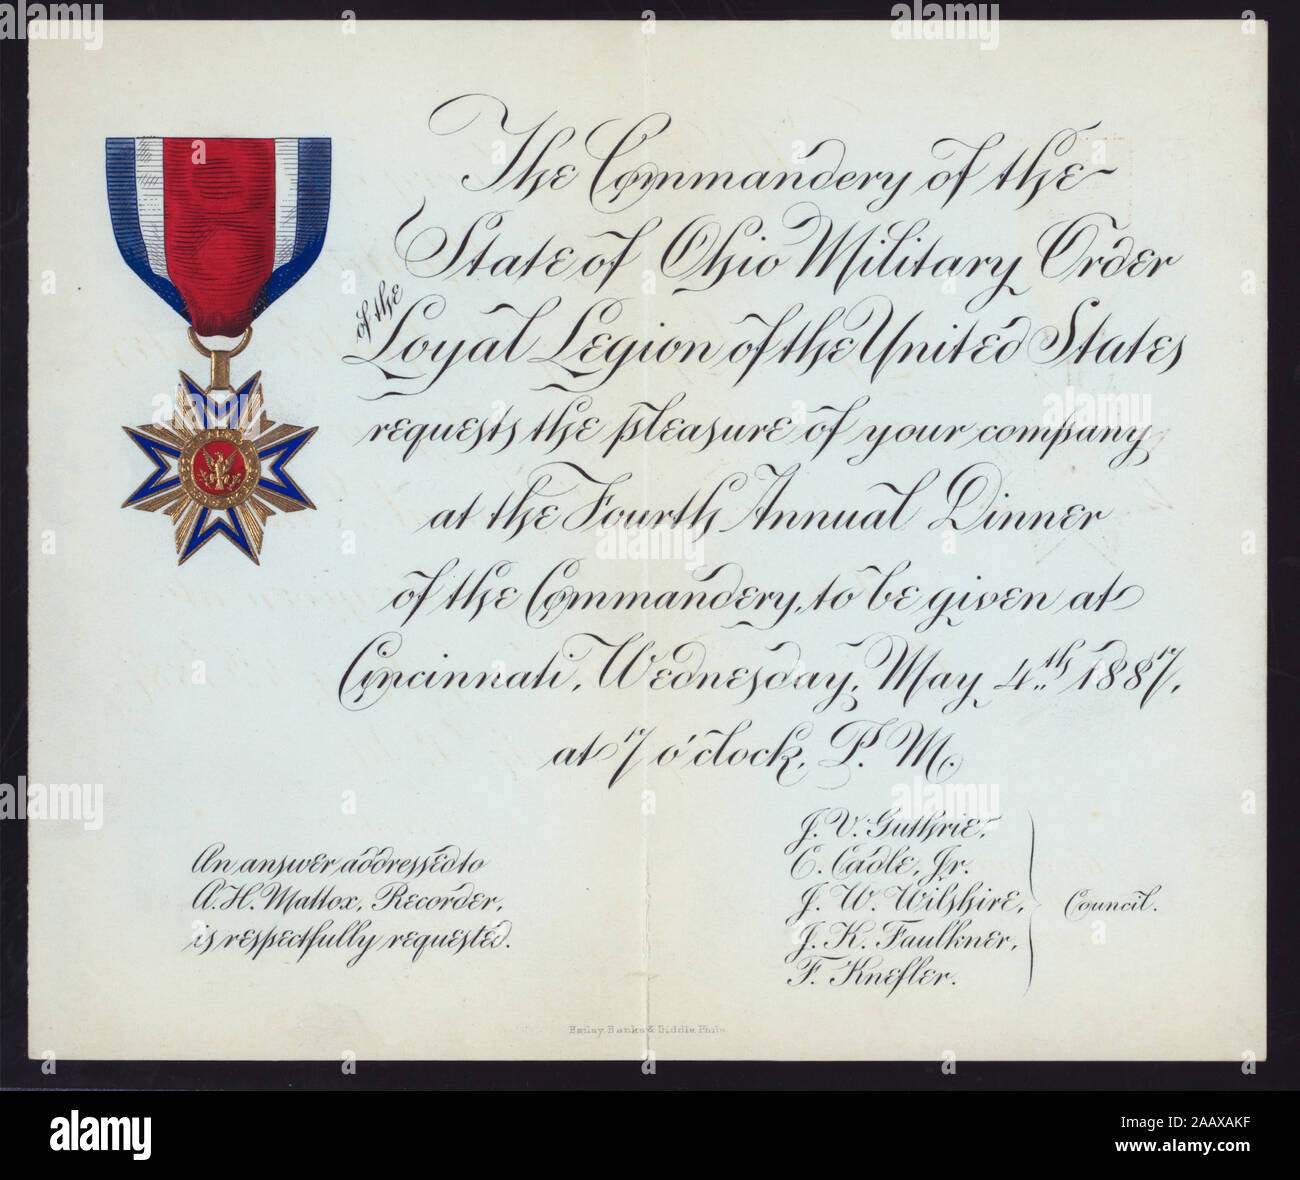 The Commandery of the
State of Ohio Military Order
of the
Loyal Legion of the United States
requests the pleasure of your company
at the Fourth Annual Dinner
of the Commandery, to be given at
Cincinnati, Wednesday, May 4th 1887,
at 7 o'clock, P. M.
An answer addressed to
A. H. Mattox, Recorder,
is respectfully requested.
J. V. Guthrie,
E. Cadle, Jr.
J. W. Wilshire,
J. K. Faulkner,
F. Knefler.
Council.
Bailey Banks & Biddle Phila
alamy
Image ID: 2AAXAKF
www.alamy.com